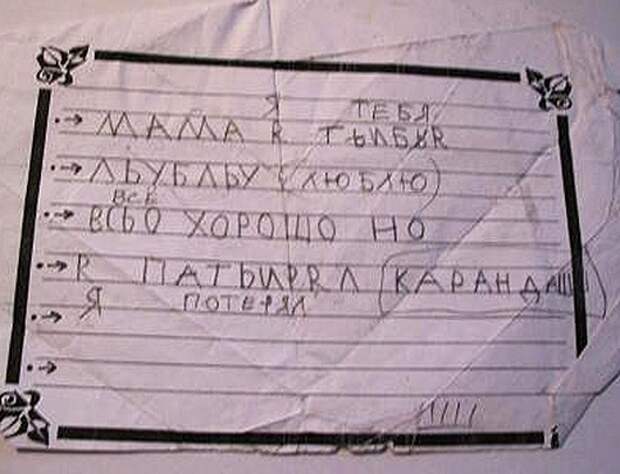 Я ТЕБЯ
МАМА R ТЬИБЯR
ЛЬУБЛЬУ (ЛЮБЛЮ)
ВСЁ
ВСЬО ХОРОШО НО
R ПАТЬИРRЛ (КАРАНДАШ)
Я ПОТЕРЯЛ